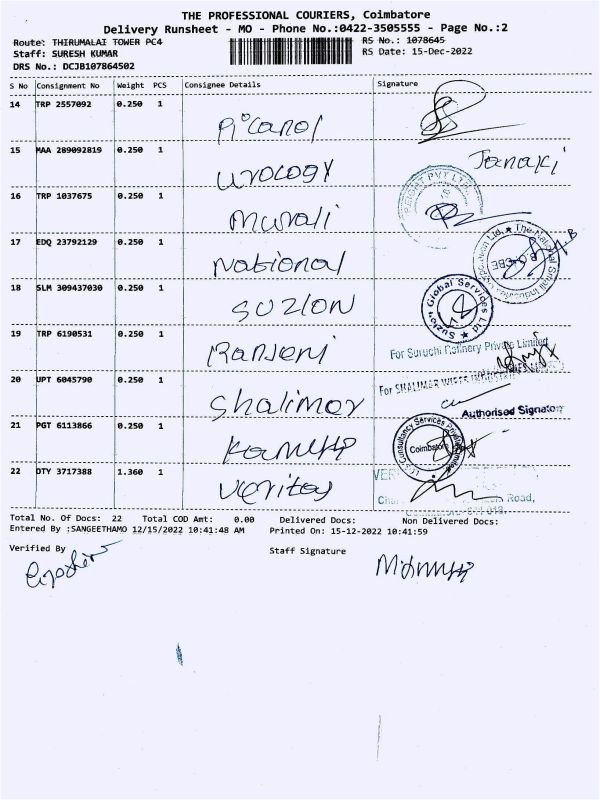 THE PROFESSIONAL COURIERS, Coimbatore
Delivery Runsheet - MO - Phone No.:0422-3505555 - Page No.:2
Route: THIRUMALAI TOWER PC4
RS No.: 1078645
Staff: SURESH KUMAR
RS Date: 15-Dec-2022
DRS No.: DCJB107864502
S No Consignment No Weight PCS Consignee Details Signature
14 TRP 2557092 0.250 1
Picanol
15 MAA 289092819 0.250 1
Urology Janaki
16 TRP 1037675 0.250 1
Murali
17 EDQ 23792129 0.250 1
National
18 SLM 309437030 0.250 1
SUZLON
Suzlon Global Services Ltd
19 TRP 6190531 0.250 1
Ranjeni
For Suruchi Refinery Private Limited
20 UPT 6045790 0.250 1
Shalimar
For SHALIMAR
Authorised Signatory
21 PGT 6113866 0.250 1
Consultancy Services
Coimbatore
22 DTY 3717388 1.360 1
Veritas
Road,
Total No. Of Docs: 22 Total COD Amt: 0.00 Delivered Docs: Non Delivered Docs:
Entered By :SANGEETHAMO 12/15/2022 10:41:48 AM Printed On: 15-12-2022 10:41:59
Verified By Staff Signature